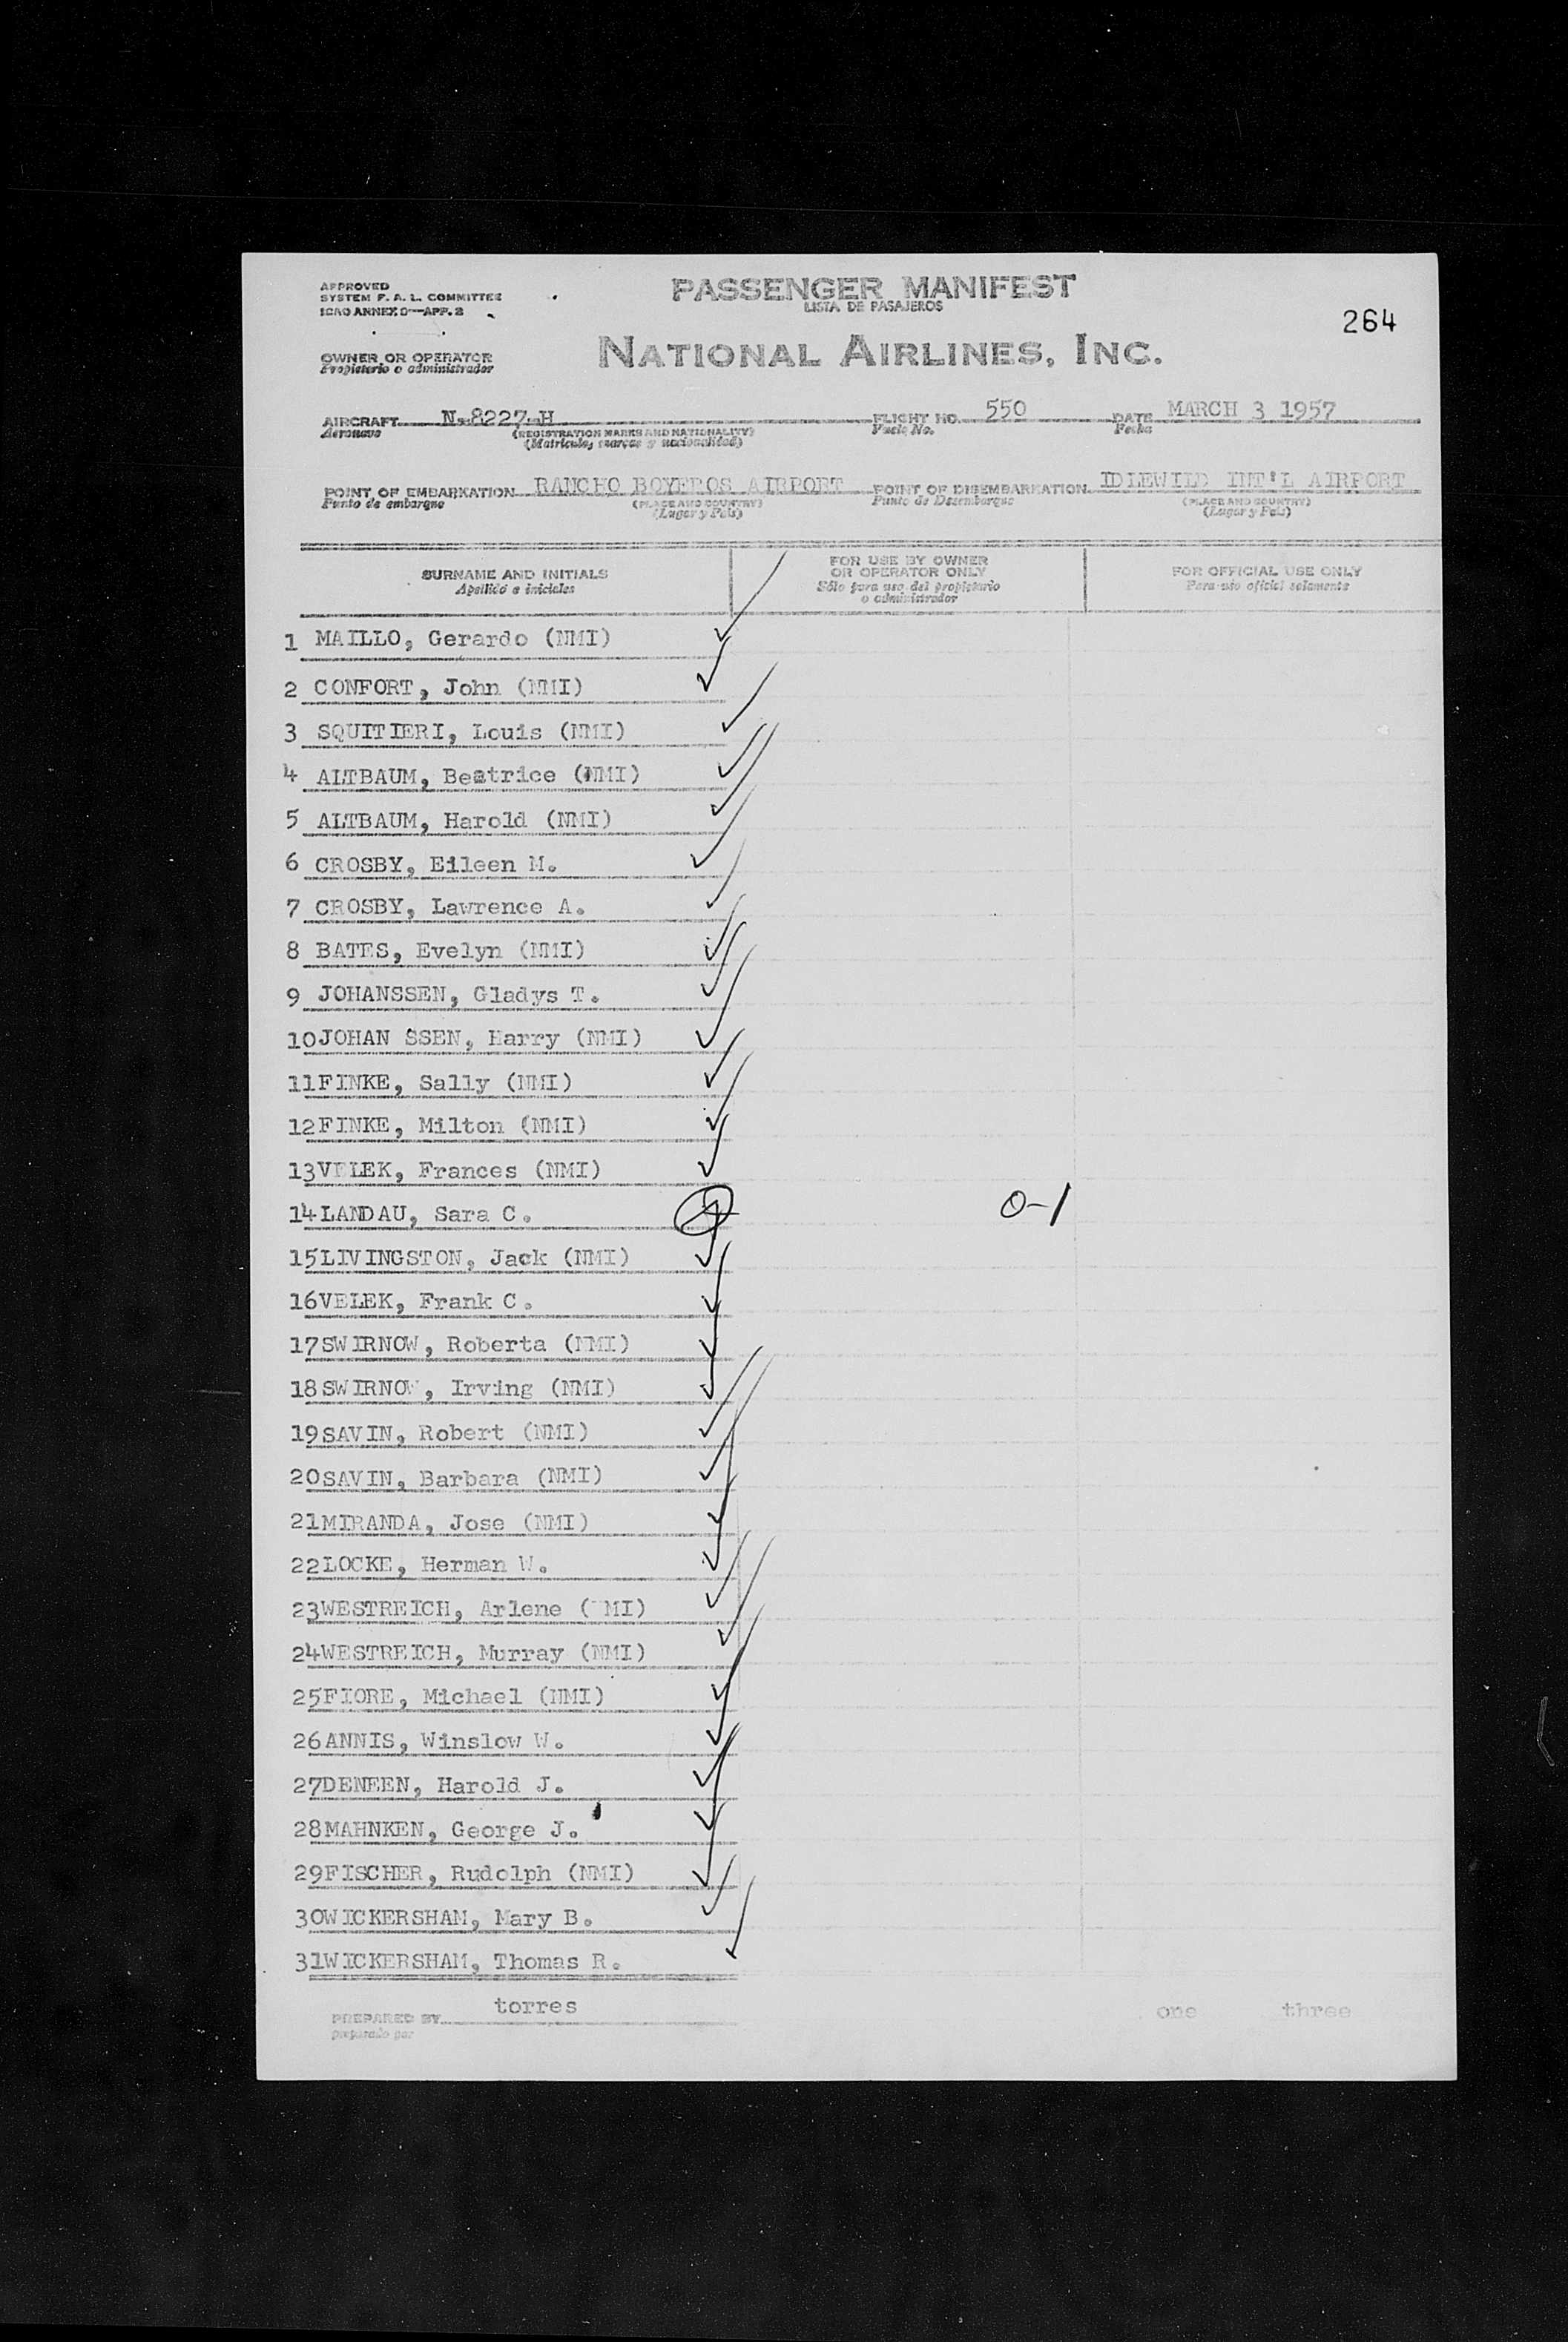 APPROVED
SYSTEM F. A. L. COMMITTEE
ICAO ANNEX 9—APP. 2
PASSENGER MANIFEST
LISTA DE PASAJEROS
264
OWNER OR OPERATOR
Propietario o administrador
NATIONAL AIRLINES, INC.
AIRCRAFT N-8227-H FLIGHT NO. 550 DATE MARCH 3 1957
Aeronave (REGISTRATION MARKS AND NATIONALITY) Vuelo No. Fecha
(Matricula, marcas y nacionalidad)
POINT OF EMBARKATION RANCHO BOYEROS AIRPORT POINT OF DISEMBARKATION IDLEWILD INT'L AIRPORT
Punto de embarque (PLACE AND COUNTRY) Punto de Desembarque (PLACE AND COUNTRY)
(Lugar y País) (Lugar y País)
SURNAME AND INITIALS
Apellido e iniciales
FOR USE BY OWNER
OR OPERATOR ONLY
Sólo para uso del propietario
o administrador
FOR OFFICIAL USE ONLY
Para uso oficial solamente
1 MAILLO, Gerardo (NMI)
2 CONFORT, John (NMI)
3 SQUITIERI, Louis (NMI)
4 ALTBAUM, Beatrice (NMI)
5 ALTBAUM, Harold (NMI)
6 CROSBY, Eileen M.
7 CROSBY, Lawrence A.
8 BATES, Evelyn (NMI)
9 JOHANSSEN, Gladys T.
10 JOHAN SSEN, Harry (NMI)
11 FINKE, Sally (NMI)
12 FINKE, Milton (NMI)
13 VELEK, Frances (NMI)
14 LANDAU, Sara C. 0-1
15 LIVINGSTON, Jack (NMI)
16 VELEK, Frank C.
17 SWIRNOW, Roberta (NMI)
18 SWIRNOW, Irving (NMI)
19 SAVIN, Robert (NMI)
20 SAVIN, Barbara (NMI)
21 MIRANDA, Jose (NMI)
22 LOCKE, Herman W.
23 WESTREICH, Arlene (NMI)
24 WESTREICH, Murray (NMI)
25 FIORE, Michael (NMI)
26 ANNIS, Winslow W.
27 DENEEN, Harold J.
28 MAHNKEN, George J.
29 FISCHER, Rudolph (NMI)
30 WICKERSHAM, Mary B.
31 WICKERSHAM, Thomas R.
PREPARED BY torres one three
preparado por